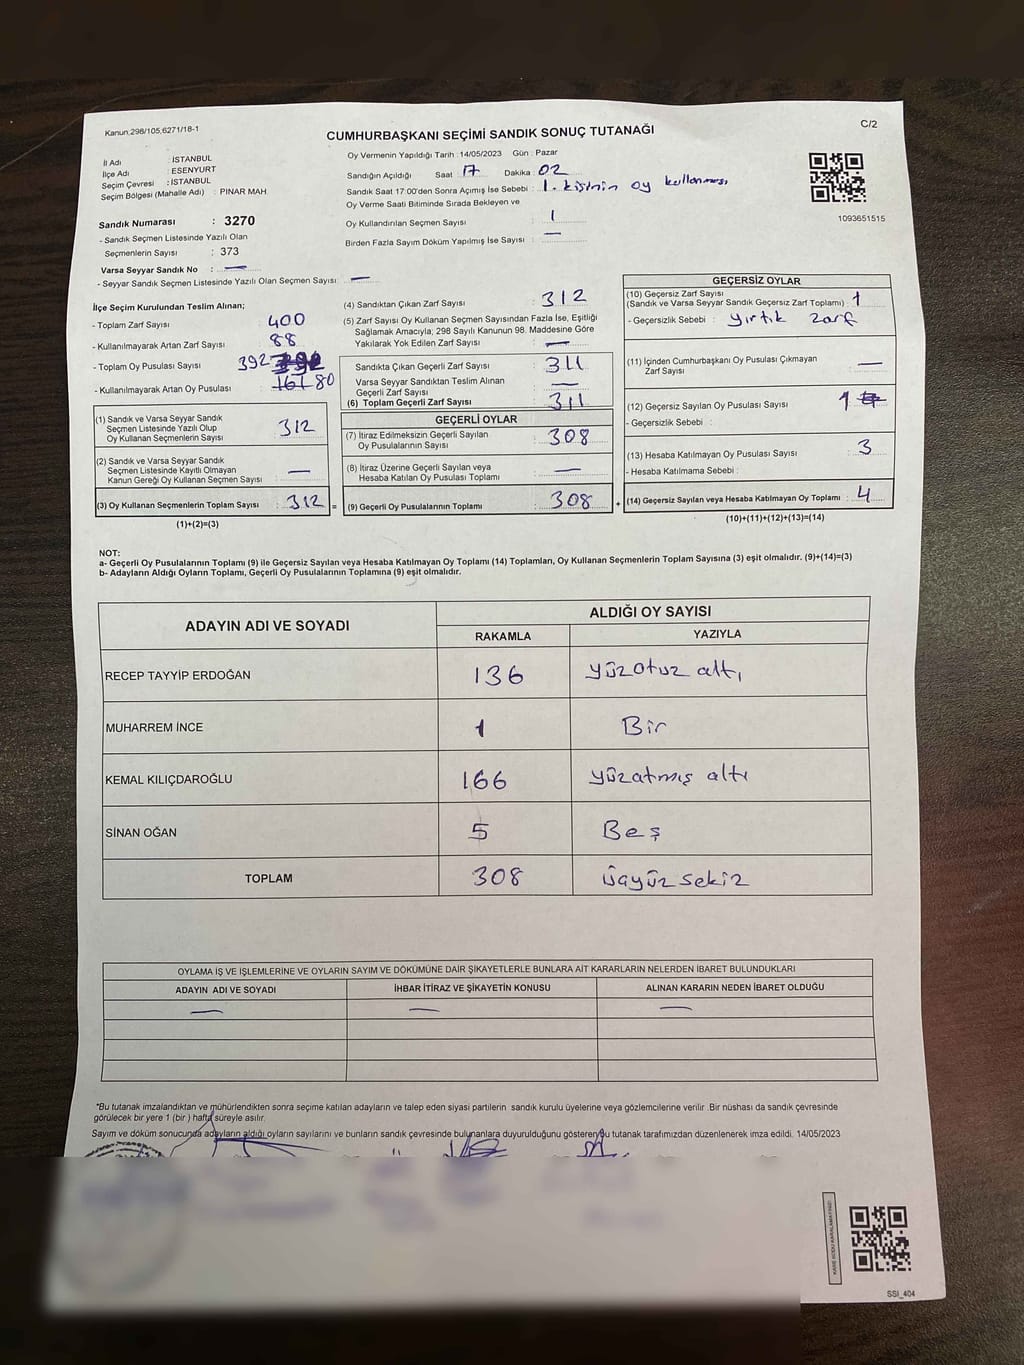 Kanun,298/105,6271/18-1
C/2
CUMHURBAŞKANI SEÇİMİ SANDIK SONUÇ TUTANAĞI
İl Adı : İSTANBUL
İlçe Adı : ESENYURT
Seçim Çevresi : İSTANBUL
Seçim Bölgesi (Mahalle Adı) : PINAR MAH
Sandık Numarası : 3270
- Sandık Seçmen Listesinde Yazılı Olan
Seçmenlerin Sayısı : 373
Varsa Seyyar Sandık No : —
- Seyyar Sandık Seçmen Listesinde Yazılı Olan Seçmen Sayısı : —
Oy Vermenin Yapıldığı Tarih : 14/05/2023 Gün : Pazar
Sandığın Açıldığı Saat 17 Dakika : 02
Sandık Saat 17:00'den Sonra Açımış İse Sebebi : 1. kişinin oy kullanması
Oy Verme Saati Bitiminde Sırada Bekleyen ve
Oy Kullandırılan Seçmen Sayısı : 1
Birden Fazla Sayım Döküm Yapılmış İse Sayısı : —
1093651515
İlçe Seçim Kurulundan Teslim Alınan;
- Toplam Zarf Sayısı : 400
- Kullanılmayarak Artan Zarf Sayısı : 88
- Toplam Oy Pusulası Sayısı : 392
- Kullanılmayarak Artan Oy Pusulası : 80
(1) Sandık ve Varsa Seyyar Sandık
Seçmen Listesinde Yazılı Olup
Oy Kullanan Seçmenlerin Sayısı : 312
(2) Sandık ve Varsa Seyyar Sandık
Seçmen Listesinde Kayıtlı Olmayan
Kanun Gereği Oy Kullanan Seçmen Sayısı : —
(3) Oy Kullanan Seçmenlerin Toplam Sayısı : 312 =
(1)+(2)=(3)
(4) Sandıktan Çıkan Zarf Sayısı : 312
(5) Zarf Sayısı Oy Kullanan Seçmen Sayısından Fazla İse, Eşitliği
Sağlamak Amacıyla; 298 Sayılı Kanunun 98. Maddesine Göre
Yakılarak Yok Edilen Zarf Sayısı : —
Sandıkta Çıkan Geçerli Zarf Sayısı : 311
Varsa Seyyar Sandıktan Teslim Alınan
Geçerli Zarf Sayısı : —
(6) Toplam Geçerli Zarf Sayısı : 311
GEÇERLİ OYLAR
(7) İtiraz Edilmeksizin Geçerli Sayılan
Oy Pusulalarının Sayısı : 308
(8) İtiraz Üzerine Geçerli Sayılan veya
Hesaba Katılan Oy Pusulası Toplamı : —
(9) Geçerli Oy Pusulalarının Toplamı : 308 +
GEÇERSİZ OYLAR
(10) Geçersiz Zarf Sayısı
(Sandık ve Varsa Seyyar Sandık Geçersiz Zarf Toplamı) : 1
- Geçersizlik Sebebi : yırtık zarf
(11) İçinden Cumhurbaşkanı Oy Pusulası Çıkmayan
Zarf Sayısı : —
(12) Geçersiz Sayılan Oy Pusulası Sayısı : 1
- Geçersizlik Sebebi :
(13) Hesaba Katılmayan Oy Pusulası Sayısı : 3
- Hesaba Katılmama Sebebi :
(14) Geçersiz Sayılan veya Hesaba Katılmayan Oy Toplamı : 4
(10)+(11)+(12)+(13)=(14)
NOT:
a- Geçerli Oy Pusulalarının Toplamı (9) ile Geçersiz Sayılan veya Hesaba Katılmayan Oy Toplamı (14) Toplamları, Oy Kullanan Seçmenlerin Toplam Sayısına (3) eşit olmalıdır. (9)+(14)=(3)
b- Adayların Aldığı Oyların Toplamı, Geçerli Oy Pusulalarının Toplamına (9) eşit olmalıdır.
ADAYIN ADI VE SOYADI
ALDIĞI OY SAYISI
RAKAMLA YAZIYLA
RECEP TAYYİP ERDOĞAN 136 yüzotuz altı
MUHARREM İNCE 1 Bir
KEMAL KILIÇDAROĞLU 166 yüzatmış altı
SİNAN OĞAN 5 Beş
TOPLAM 308 üçyüz sekiz
OYLAMA İŞ VE İŞLEMLERİNE VE OYLARIN SAYIM VE DÖKÜMÜNE DAİR ŞİKAYETLERLE BUNLARA AİT KARARLARIN NELERDEN İBARET BULUNDUKLARI
ADAYIN ADI VE SOYADI İHBAR İTİRAZ VE ŞİKAYETİN KONUSU ALINAN KARARIN NEDEN İBARET OLDUĞU
— — —
*Bu tutanak imzalandıktan ve mühürlendikten sonra seçime katılan adayların ve talep eden siyasi partilerin sandık kurulu üyelerine veya gözlemcilerine verilir .Bir nüshası da sandık çevresinde
görülecek bir yere 1 (bir ) hafta süreyle asılır.
Sayım ve döküm sonucunda adayların aldığı oyların sayılarını ve bunların sandık çevresinde bulunanlara duyurulduğunu gösteren bu tutanak tarafımızdan düzenlenerek imza edildi. 14/05/2023
SSI_404